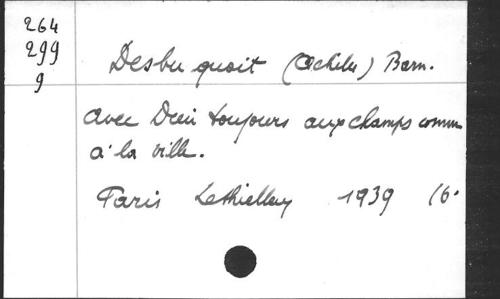 264
299
9
Desbuquoit (Achiles) Barn.
avec Dieu toujours aux champs comm
à la ville.
Paris Lethielleux 1939 16°